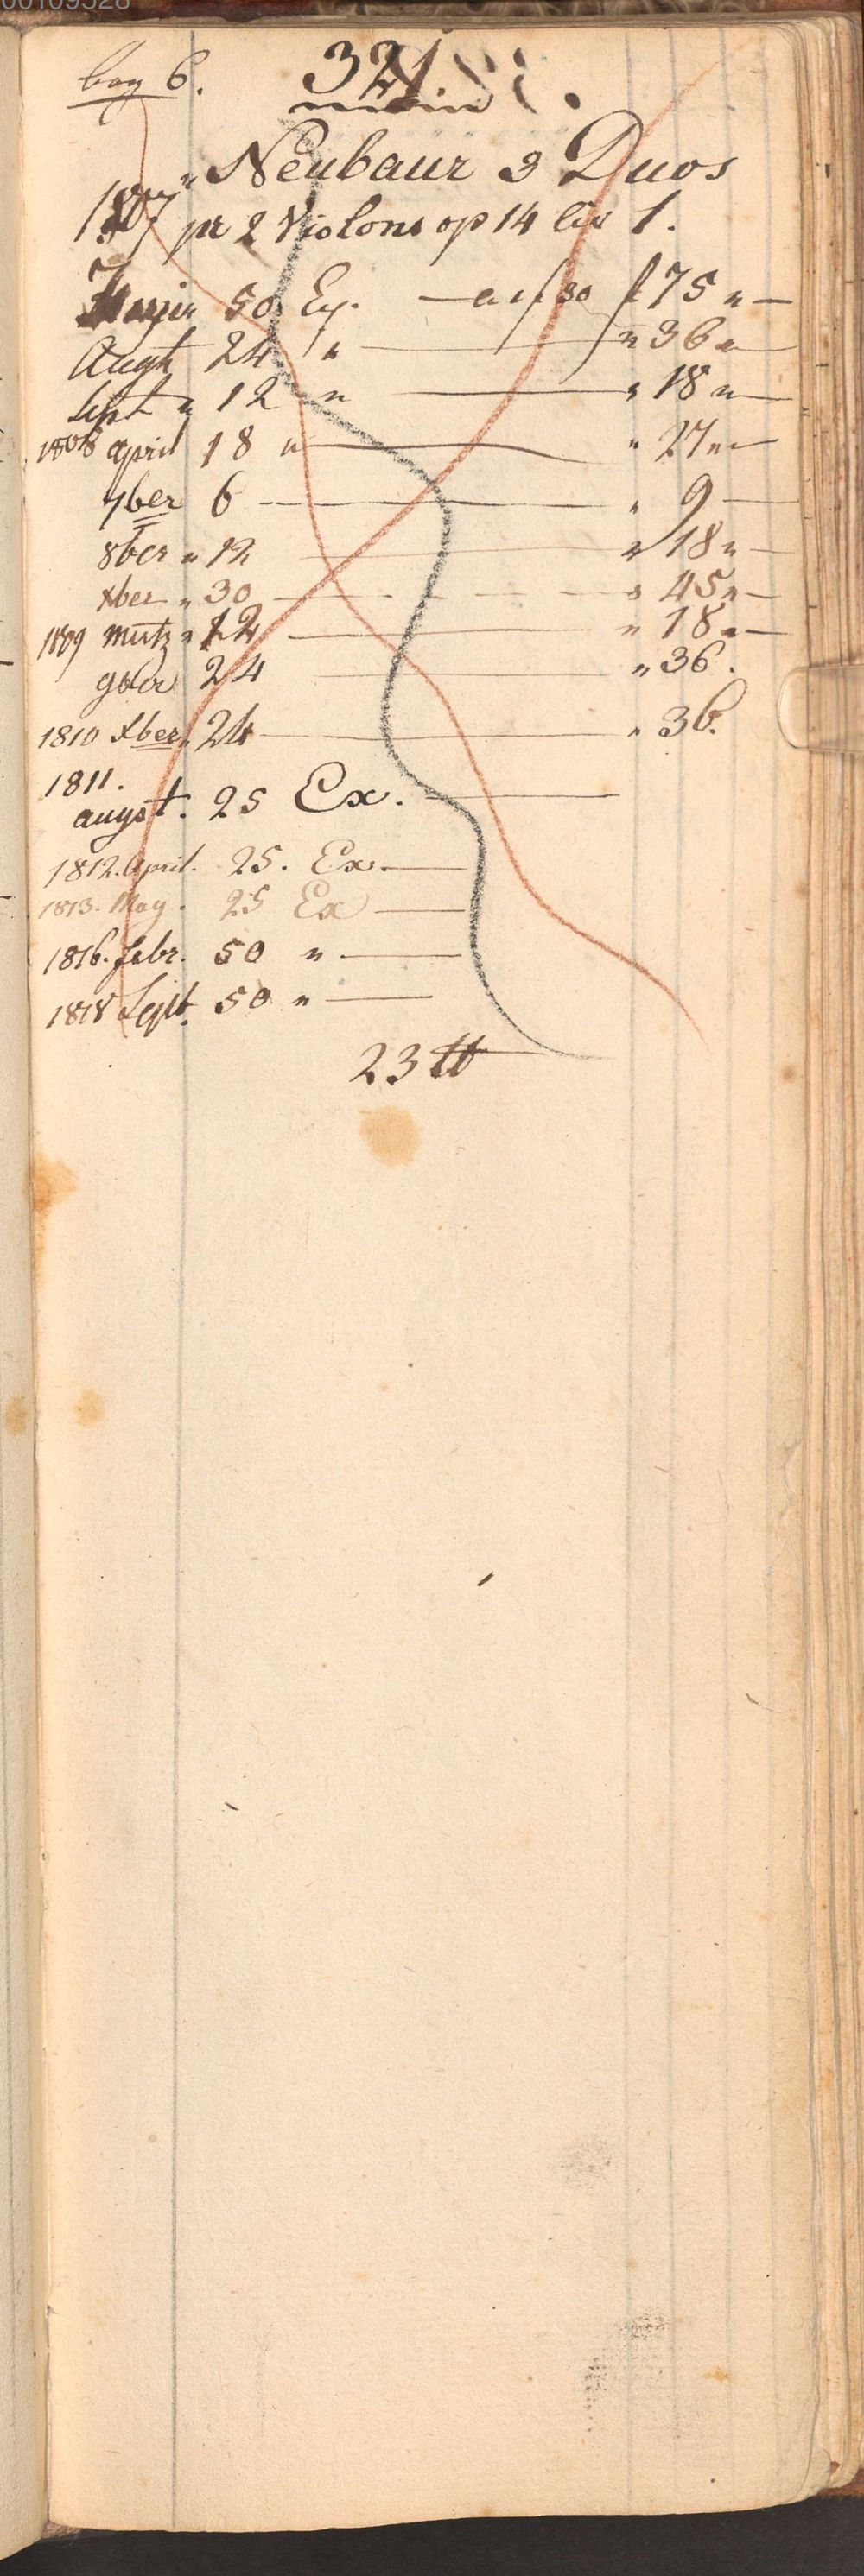 bog 6. 321.
" Neubaur 3 Duos
1807 pr 2 Violons op 14 liv 1.
50 Ex. — a 1f 30 f 75 " —
Augst 24 " — " 36 " —
Sept " 12 " — " 18 " —
1808 april 18 " — " 27 " —
7ber 6 — " 9 —
8ber " 12 — " 18 " —
xber " 30 — " 45 " —
1809 Mertz " 12 — " 18 " —
9ber 24 — " 36.
1810 Xber " 24 — " 36.
1811.
augst. 25 Ex. —
1812. April. 25. Ex. —
1813. May. 25 Ex —
1816. febr. 50 " —
1818 Sept. 50 " —
23 ℔